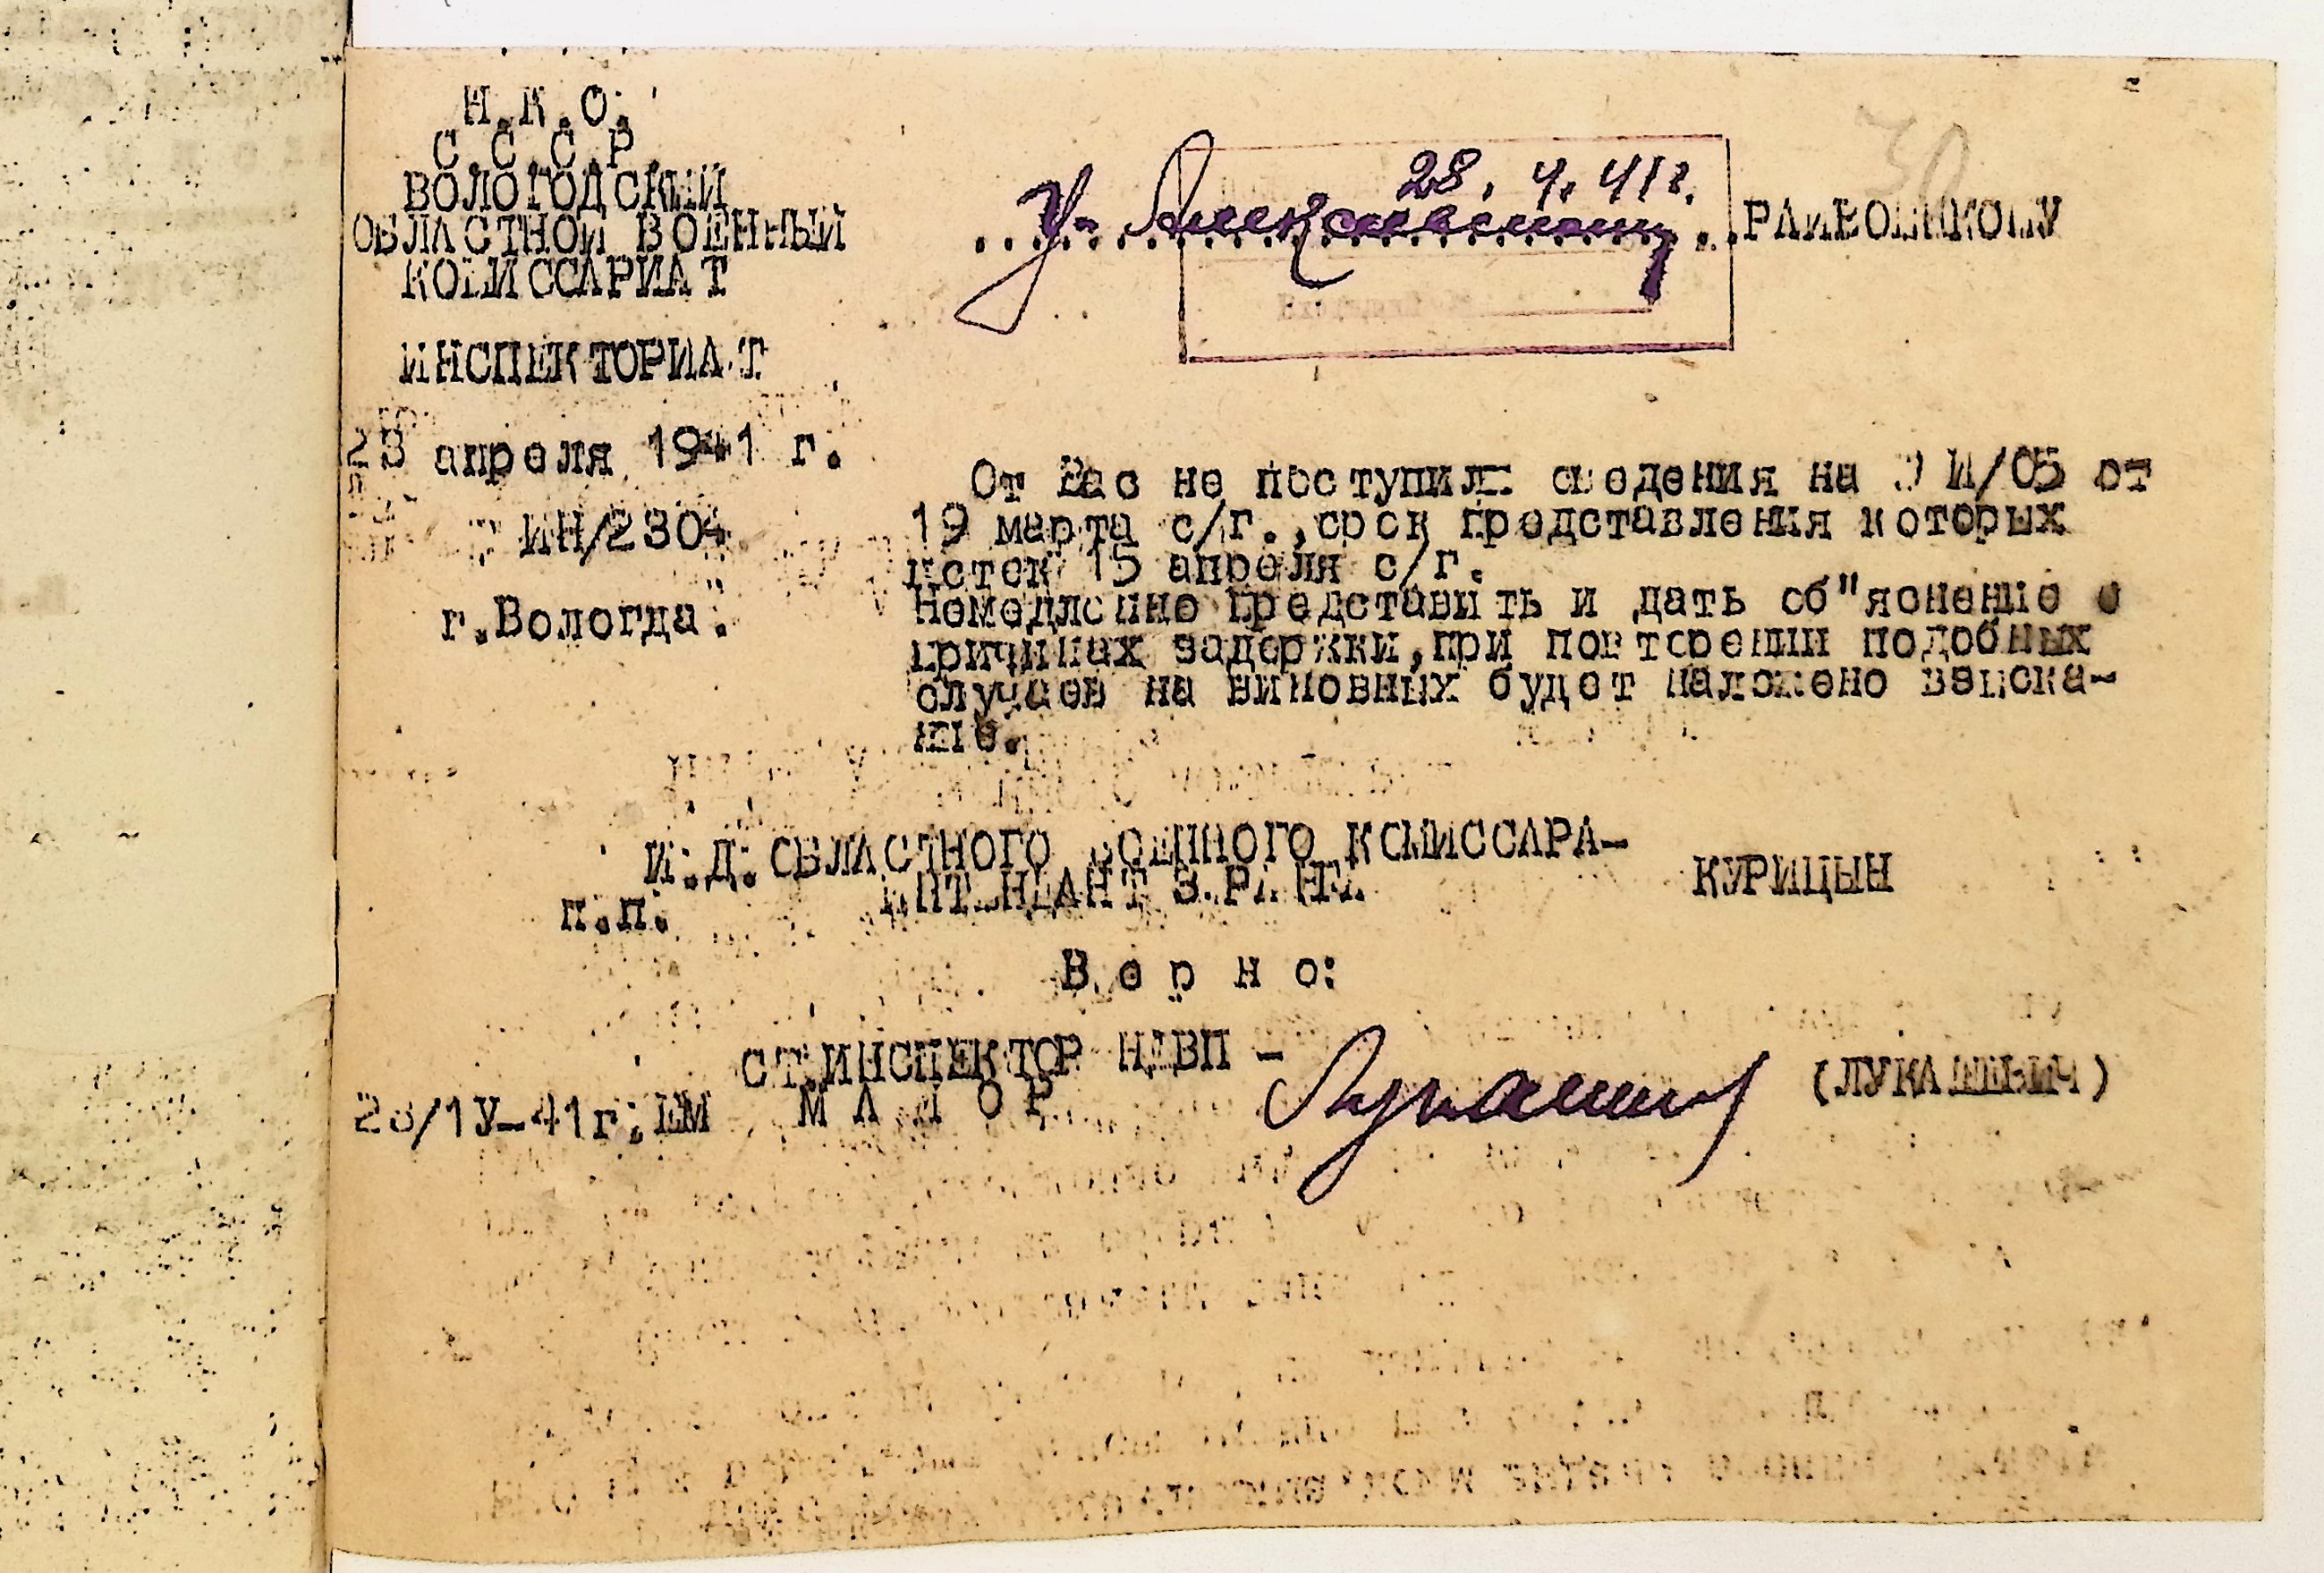 Н.К.О.
С.С.С.Р.
ВОЛОГОДСКИЙ
ОБЛАСТНОЙ ВОЕННЫЙ
КОМИССАРИАТ
ИНСПЕКТОРИАТ
23 апреля 1941 г.
ИН/2304
г.Вологда.
30
28. 4. 41 г.
У-Алексеевскому РАЙВОЕНКОМУ
От Вас не поступили сведения на И/05 от
19 марта с/г.,срок представления которых
истек 15 апреля с/г.
Немедленно представить и дать об"яснение о
причинах задержки,при повторении подобных
случаев на виновных будет наложено взыска-
ние.
И.Д.ОБЛАСТНОГО ВОЕННОГО КОМИССАРА-
п.п. ИНТЕНДАНТ 3.РАНГА КУРИЦЫН
В е р н о:
СТ.ИНСПЕКТОР НДВП -
МАЙОР (ЛУКАШЕВИЧ)
/1У-41г. ЕМ